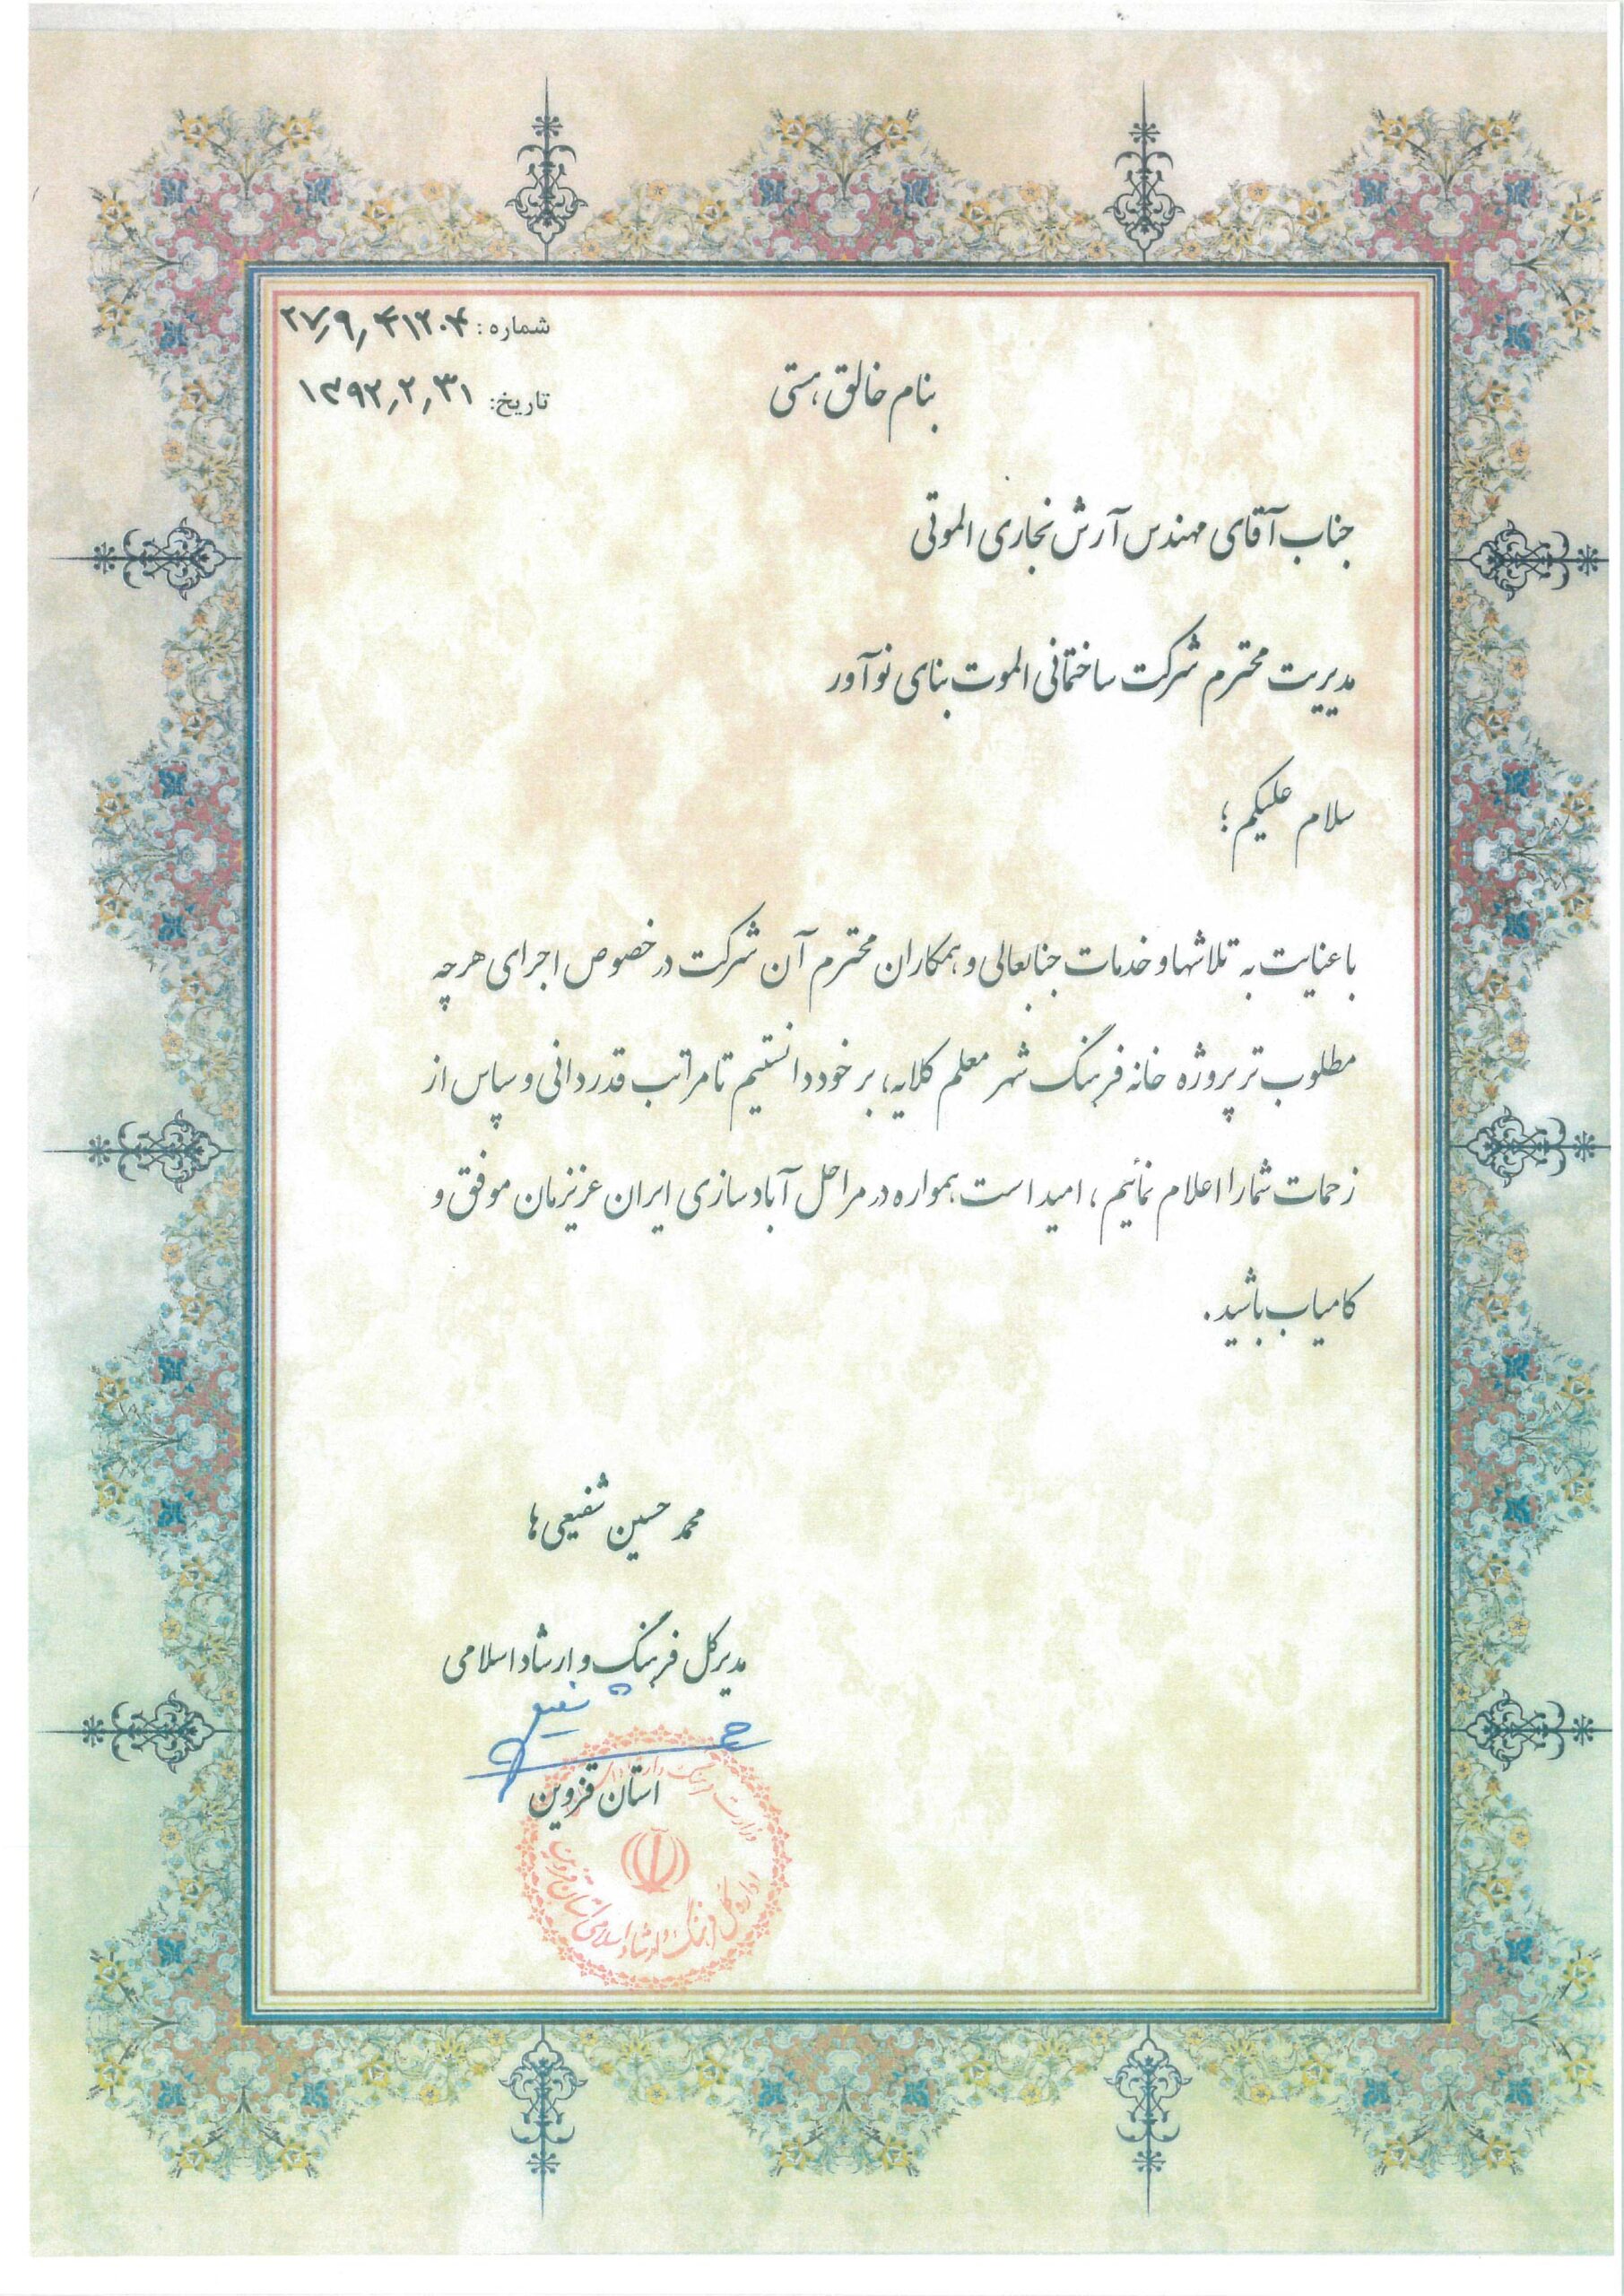 شماره: ۲۷٫۹٫۴۱۲۰۴
تاریخ: ۱۳۹۲٫۲٫۳۱
بنام خالق هستی
جناب آقای مهندس آرش نجاری الموتی
مدیریت محترم شرکت ساختمانی الموت بنای نوآور
سلام علیکم ؛
با عنایت به تلاشها و خدمات جنابعالی و همکاران محترم آن شرکت در خصوص اجرای هرچه
مطلوب تر پروژه خانه فرهنگ شهر معلم کلایه، بر خود دانستیم تا مراتب قدردانی و سپاس از
زحمات شما را اعلام نمائیم ، امید است همواره در مراحل آباد سازی ایران عزیزمان موفق و
کامیاب باشید.
محمد حسین شفیعی ها
مدیرکل فرهنگ و ارشاد اسلامی
استان قزوین
اداره کل فرهنگ و ارشاد اسلامی استان قزوین